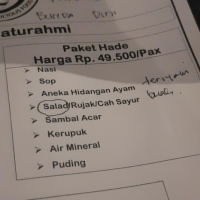 aturahmi
Paket Hade
Harga Rp. 49.500/Pax
Nasi
Sop
Aneka Hidangan Ayam
Salad/Rujak/Cah Sayur
Sambal Acar
Kerupuk
Air Mineral
Puding